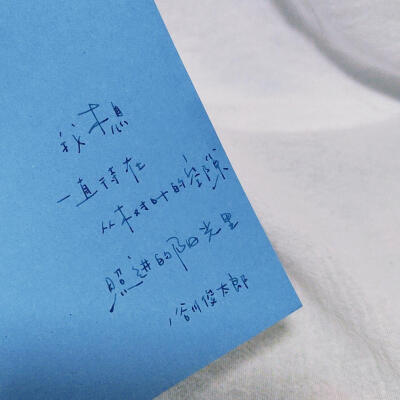 我想
一直待在
从树叶的空隙
照进的阳光里
谷川俊太郎